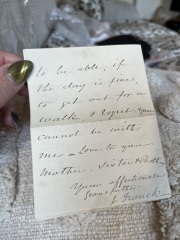 to be able, if
the day is fine,
to get out for a
walk & regret you
cannot be with
me – Love to your
Mother, Sister &
Your affectionate
Grand
J Franck